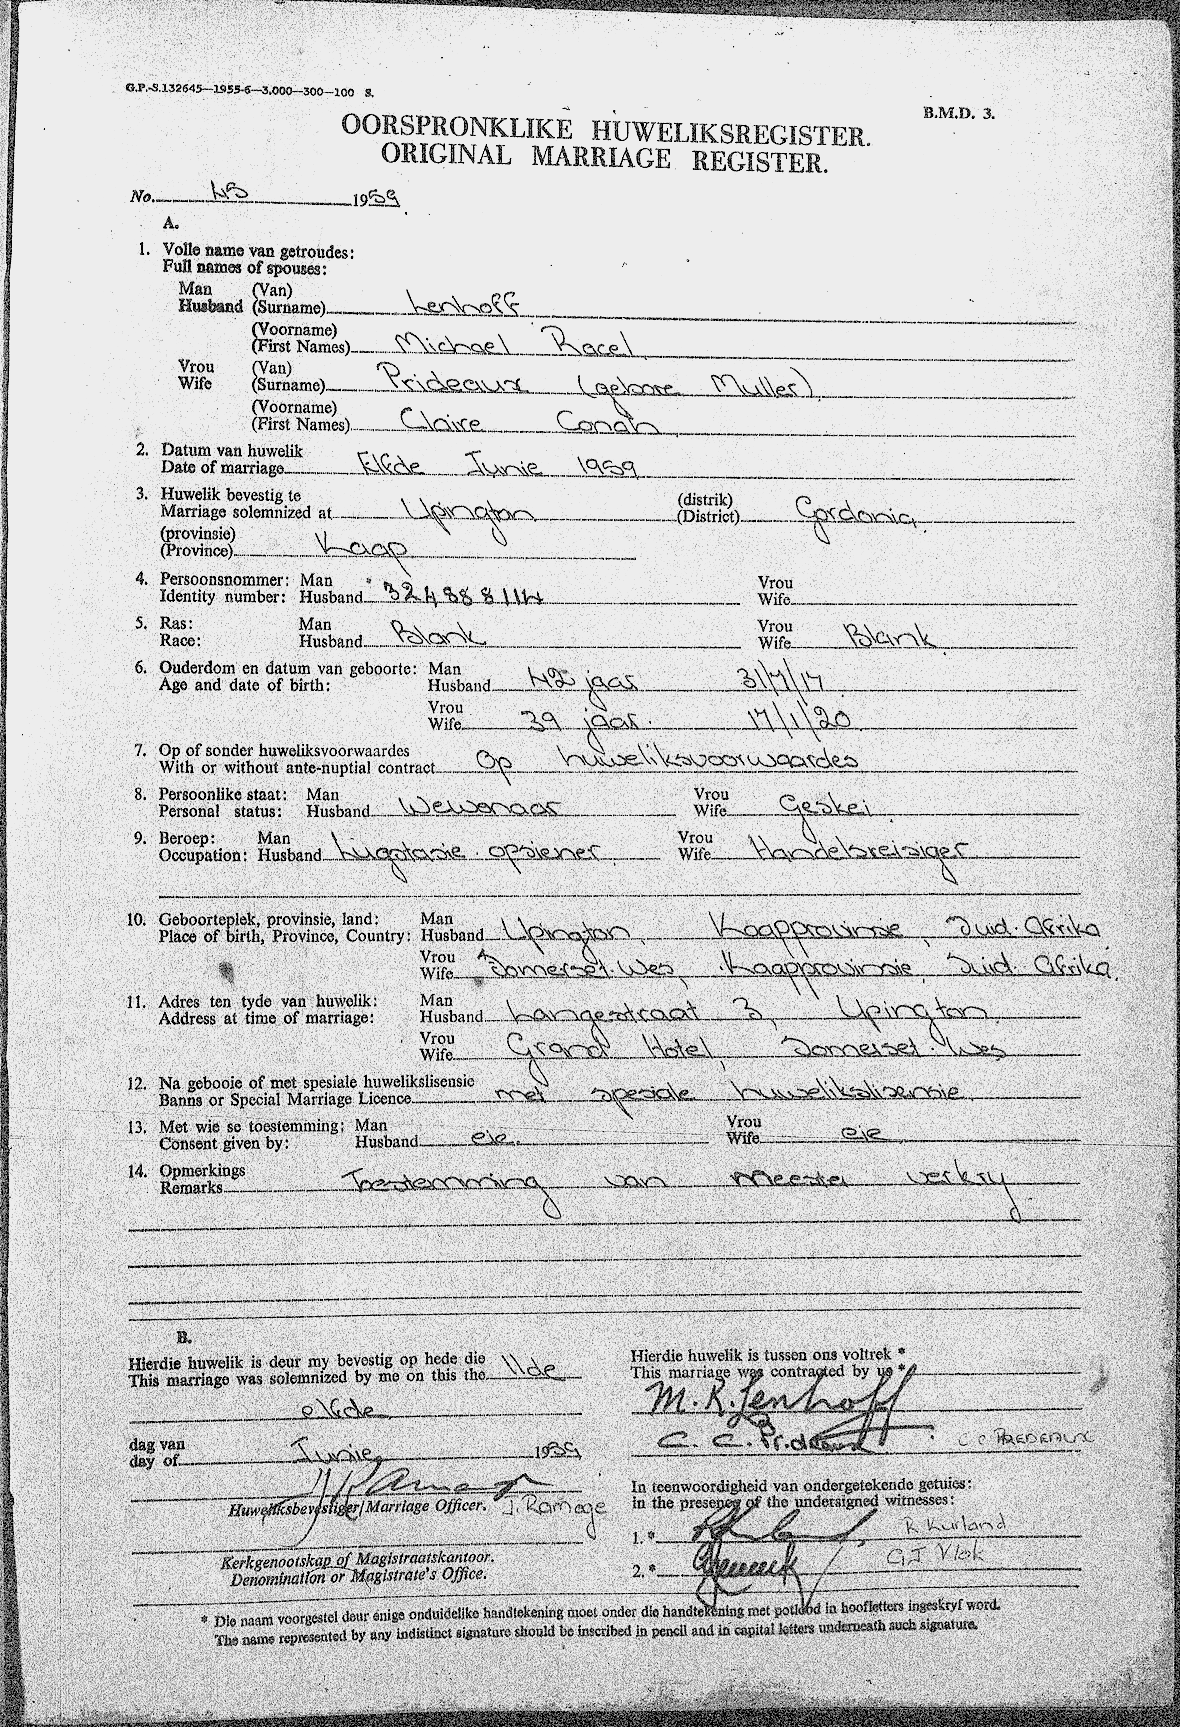 G.P.-S.132645—1955-6—3,000—300—100 S.
B.M.D. 3.
OORSPRONKLIKE HUWELIKSREGISTER.
ORIGINAL MARRIAGE REGISTER.
No. 45 1959
A.
1. Volle name van getroudes:
Full names of spouses:
Man (Van)
Husband (Surname) Lenhoff
(Voorname)
(First Names) Michael Racel
Vrou (Van)
Wife (Surname) Prideaux (gebore Muller)
(Voorname)
(First Names) Claire Conah
2. Datum van huwelik
Date of marriage Elfde Junie 1959
3. Huwelik bevestig te (distrik)
Marriage solemnized at Upington (District) Gordonia
(provinsie)
(Province) Kaap
4. Persoonsnommer: Man Vrou
Identity number: Husband 324888114 Wife
5. Ras: Man Vrou
Race: Husband Blank Wife Blank
6. Ouderdom en datum van geboorte: Man
Age and date of birth: Husband 42 jaar 31/7/17
Vrou
Wife 39 jaar. 17/1/20
7. Op of sonder huweliksvoorwaardes
With or without ante-nuptial contract Op huweliksvoorwaardes
8. Persoonlike staat: Man Vrou
Personal status: Husband Wewenaar Wife Geskei
9. Beroep: Man Vrou
Occupation: Husband Lugstasie opsiener Wife Handelsreisiger
10. Geboorteplek, provinsie, land: Man
Place of birth, Province, Country: Husband Upington, Kaapprovinsie, Suid-Afrika
Vrou
Wife Somerset-Wes, Kaapprovinsie, Suid-Afrika.
11. Adres ten tyde van huwelik: Man
Address at time of marriage: Husband Langestraat 3, Upington
Vrou
Wife Grand Hotel, Somerset-Wes
12. Na gebooie of met spesiale huwelikslisensie
Banns or Special Marriage Licence met spesiale huwelikslisensie
13. Met wie se toestemming: Man Vrou
Consent given by: Husband eie Wife eie
14. Opmerkings
Remarks Toestemming van Meester verkry
B.
Hierdie huwelik is deur my bevestig op hede die
This marriage was solemnized by me on this the 11de
elfde
dag van
day of Junie 1959
Huweliksbevestiger/Marriage Officer. J. Ramage
Kerkgenootskap of Magistraatskantoor.
Denomination or Magistrate's Office.
Hierdie huwelik is tussen ons voltrek *
This marriage was contracted by us *
M. R. Lenhoff
C. C. Prideaux C C PREDEAUX
In teenwoordigheid van ondergetekende getuies:
in the presence of the undersigned witnesses:
1.* R Kurland
2.* G J Vlok
* Die naam voorgestel deur enige onduidelike handtekening moet onder die handtekening met potlood in hoofletters ingeskryf word.
The name represented by any indistinct signature should be inscribed in pencil and in capital letters underneath such signature.